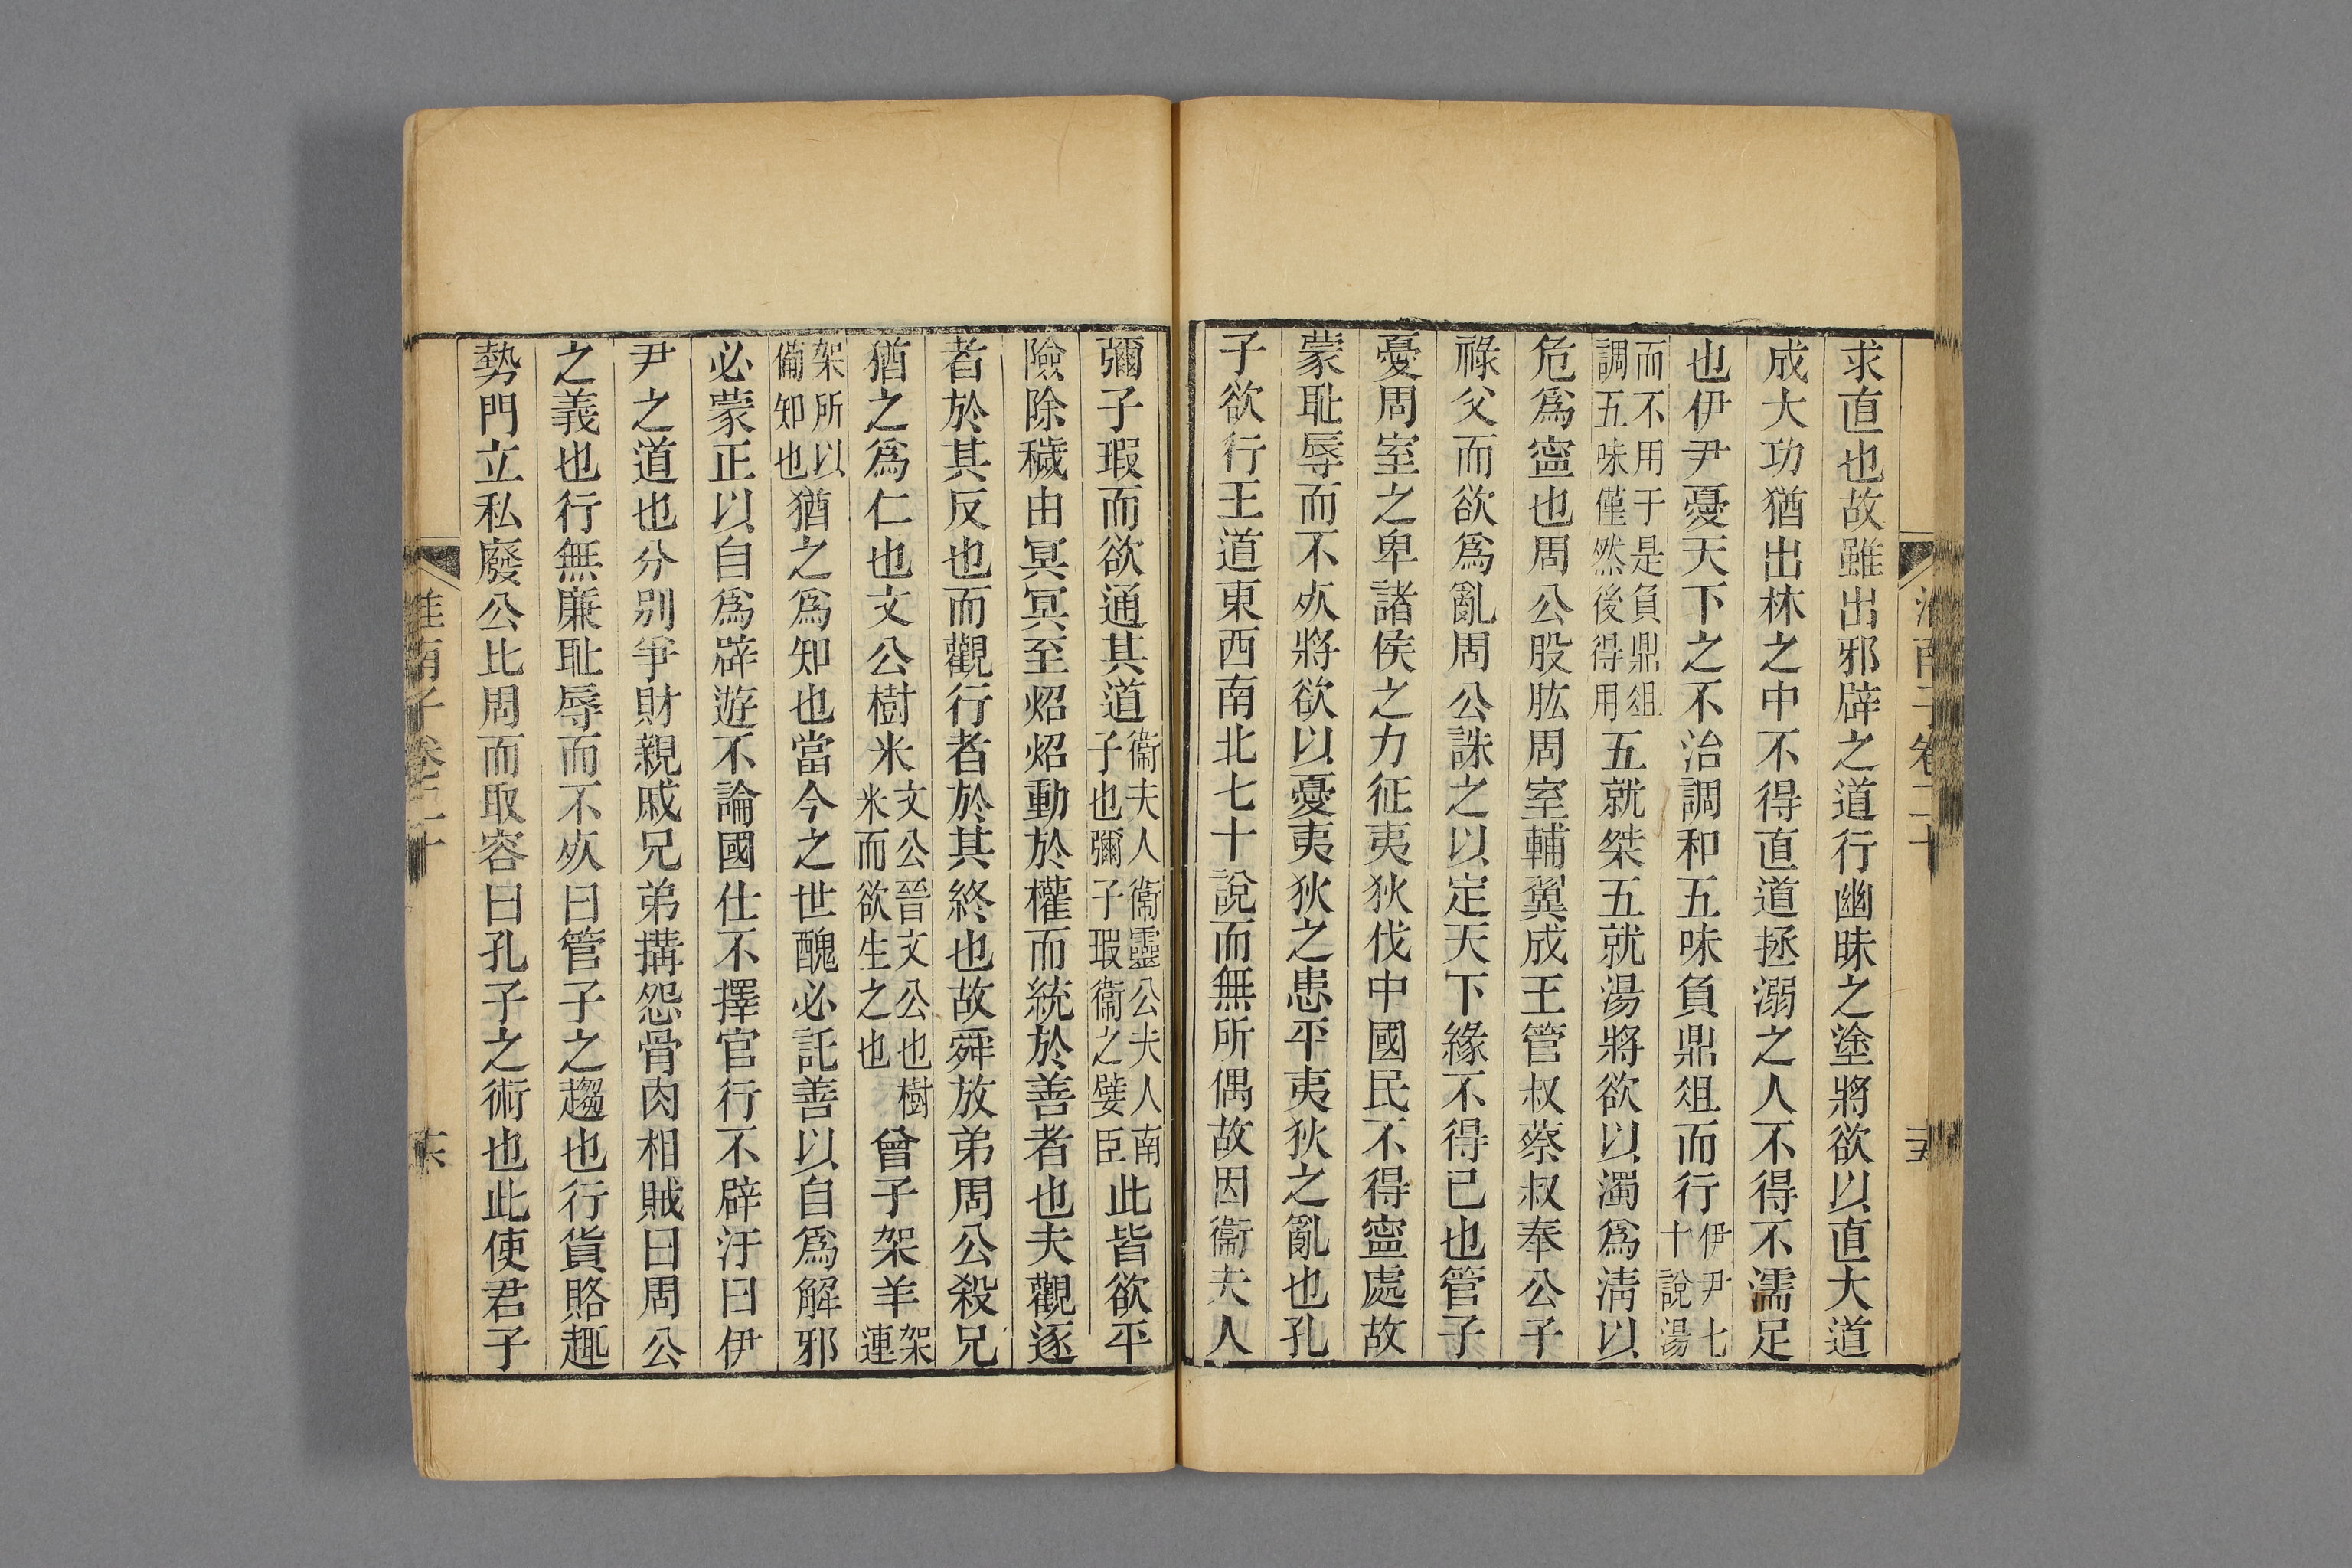 求直也故雖出邪辟之道行幽昧之塗將欲以直大道
成大功猶出林之中不得直道拯溺之人不得不濡足
也伊尹憂天下之不治調和五味負鼎俎而行伊尹七十說湯
而不用于是負鼎俎調五味僅然後得用五就桀五就湯將欲以濁爲清以
危爲寍也周公股肱周室輔翼成王管叔蔡叔奉公子
祿父而欲爲亂周公誅之以定天下緣不得已也管子
憂周室之卑諸侯之力征夷狄伐中國民不得寍處故
蒙恥辱而不㱙將欲以憂夷狄之患平夷狄之亂也孔
子欲行王道東西南北七十說而無所偶故因衞夫人
彌子瑕而欲通其道衞夫人衞靈公夫人南子也彌子瑕衞之嬖臣此皆欲平
險除穢由冥冥至炤炤動於權而統於善者也夫觀逐
者於其反也而觀行者於其終也故舜放弟周公殺兄
猶之爲仁也文公樹米文公晉文公也樹米而欲生之也曾子架羊架連
架所以備知也猶之爲知也當今之世醜必託善以自爲解邪
必蒙正以自爲辟遊不論國仕不擇官行不辟汙曰伊
尹之道也分別爭財親戚兄弟搆怨骨肉相賊曰周公
之義也行無廉恥辱而不㱙曰管子之趨也行貨賂趣
勢門立私廢公比周而取容曰孔子之術也此使君子
淮南子卷二十
十六